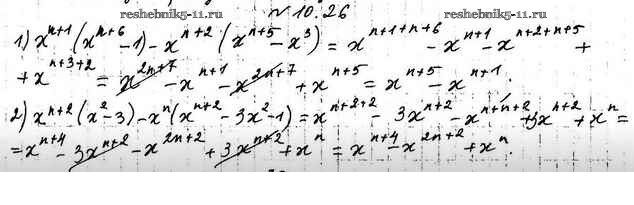 reshebnik5-11.ru
№ 10.26
reshebnik5-11.ru
1) x^{n+1}(x^{n+6} - 1) - x^{n+2}(x^{n+5} - x^3) = x^{n+1+n+6} - x^{n+1} - x^{n+2+n+5} +
+ x^{n+3+2} = x^{2n+7} - x^{n+1} - x^{2n+7} + x^{n+5} = x^{n+5} - x^{n+1}.
2) x^{n+2}(x^2 - 3) - x^n(x^{n+2} - 3x^2 - 1) = x^{n+2+2} - 3x^{n+2} - x^{n+n+2} + 3x^{n+2} + x^n =
= x^{n+4} - 3x^{n+2} - x^{2n+2} + 3x^{n+2} + x^n = x^{n+4} - x^{2n+2} + x^n.